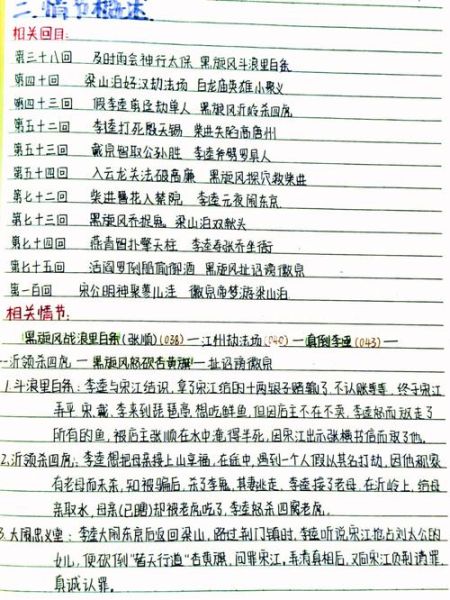 三、情节概述
相关回目:
第三十八回 及时雨会神行太保 黑旋风斗浪里白条
第四十回 梁山泊好汉劫法场 白龙庙英雄小聚义
第四十三回 假李逵剪径劫单人 黑旋风沂岭杀四虎
第五十二回 李逵打死殷天锡 柴进失陷高唐州
第五十三回 戴宗智取公孙胜 李逵斧劈罗真人
第五十四回 入云龙斗法破高廉 黑旋风探穴救柴进
第七十二回 柴进簪花入禁院 李逵元夜闹东京
第七十三回 黑旋风乔捉鬼 梁山泊双献头
第七十四回 燕青智扑擎天柱 李逵寿张乔坐衙
第七十五回 活阎罗倒船偷御酒 黑旋风扯诏谤徽宗
第一百回 宋公明神聚蓼儿洼 徽宗帝梦游梁山泊
相关情节:
黑旋风战浪里白条(张顺)(038)—江州劫法场(040)—真假李逵(043)—
—沂岭杀四虎—黑旋风怒砍杏黄旗—扯诏谤徽宗
1.斗浪里白条:李逵与宋江结识,拿了宋江给的十两银子赌输了,不认账,终于宋江
弄平 宋、戴、李来到琵琶亭,想吃鲜鱼,但因店主不在不卖,李逵怒而放走了
所有的鱼,被店主张顺在水中淹得半死,因宋江出示张横书信而救了他。
2.沂岭杀四虎:李逵想把母亲接上山享福,在途中,遇到一个人假以其名打劫,因他视家
有老母而未杀,知被骗后,杀了李鬼,其妻逃走,李逵接了老母,在沂岭上,给母
亲取水,母亲(已瞎)却被老虎吃了,李逵怒杀四窝老虎。
3.大闹忠义堂:李逵大闹东京后返回梁山,路过荆门镇时,李逵听说宋江抢占刘太公的
女儿,便砍倒“替天行道”杏黄旗,问罪宋江。弄清真相后,又向宋江负荆请罪,
真诚认罪。